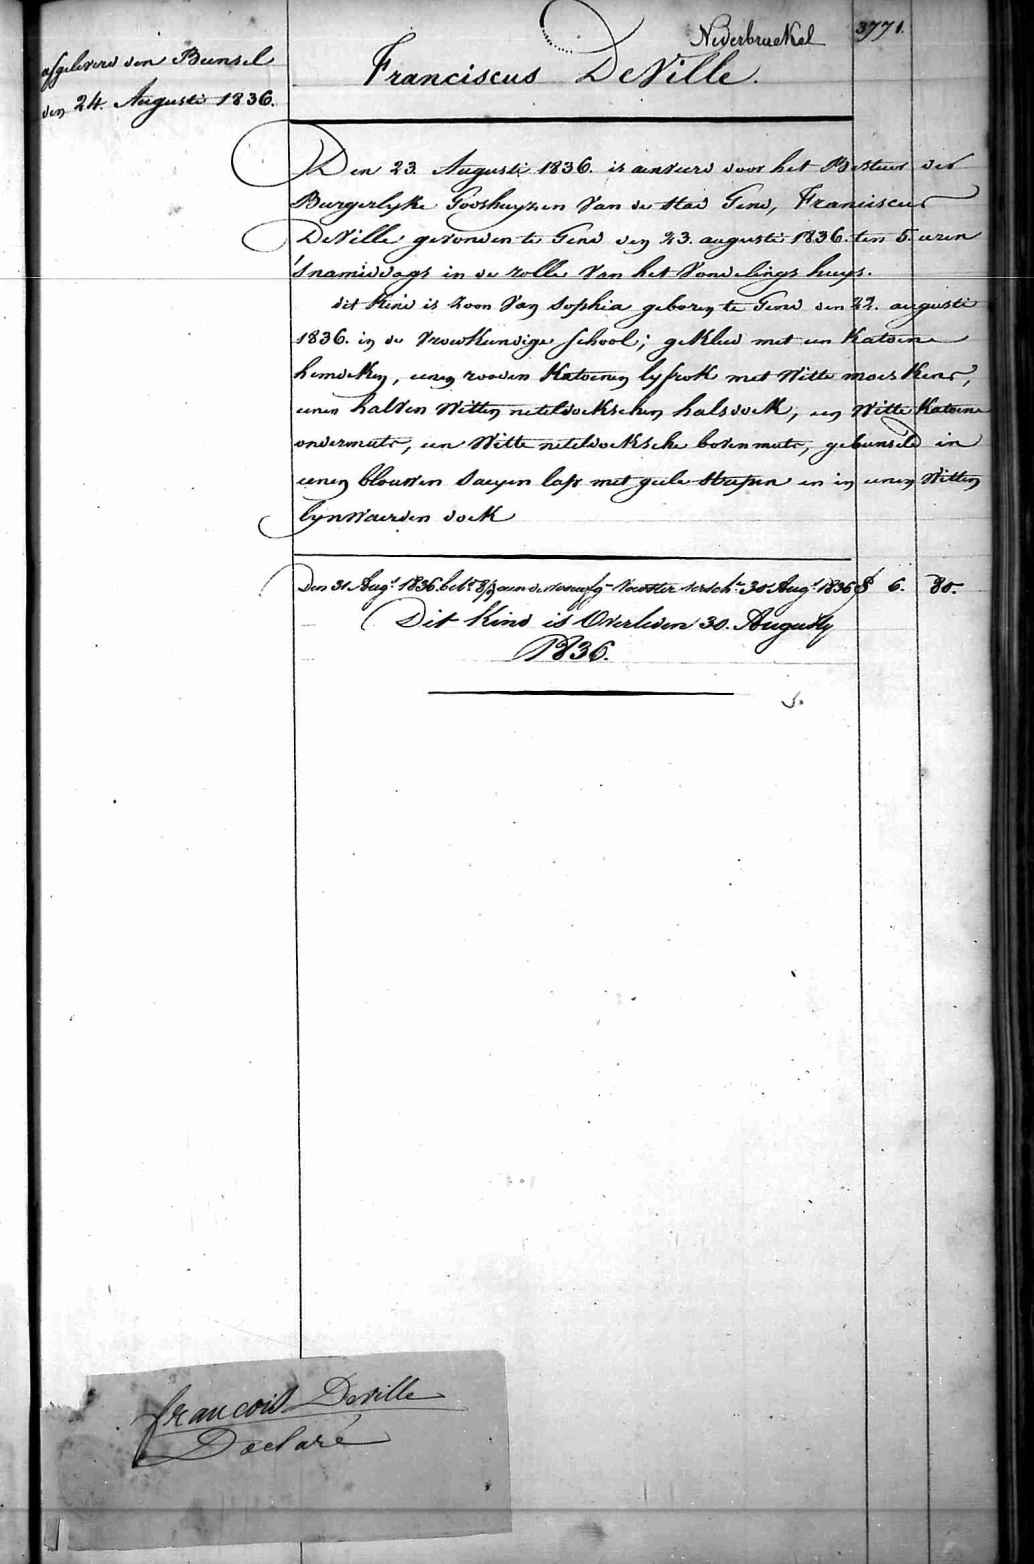 Nederbruekel 3771.
afgelevere den Bunsel
den 24. Augusti 1836.
Franciscus DeVille.
Den 23. Augusti 1836. is aenveerd door het Bestuer der
Burgerlyke Godshuyzen Van de Stad Gend, Franciscus
DeVille gevonden te Gend den 23. augusti 1836. ten 5. uren
'Snamiddags in de rolle Van het Vondelings huys.
dit Kind is zoon Van Sophia geboren te Gend den 22. augusti
1836. in de Vroedkundige School; gekleed met een Katoene
hemdeken, eenen rooden Katoenen lyfrok met Witte moeskens,
eenen halven Witten neteldoekschen halsdoek, een Witte Katoene
ondermuts, een Witte neteldoeksche bovenmuts, gebunseld in
eenen blauwen Saeyen lap met geele Strepen en in eenen Witten
lynwaerden doek
Den 31 Augt. 1836. bet. aen de Voedster versch. 30 Augt. 1836 6. 80.
Dit Kind is Overleden 30. Augusty
1836.
francois Deville
Declaré